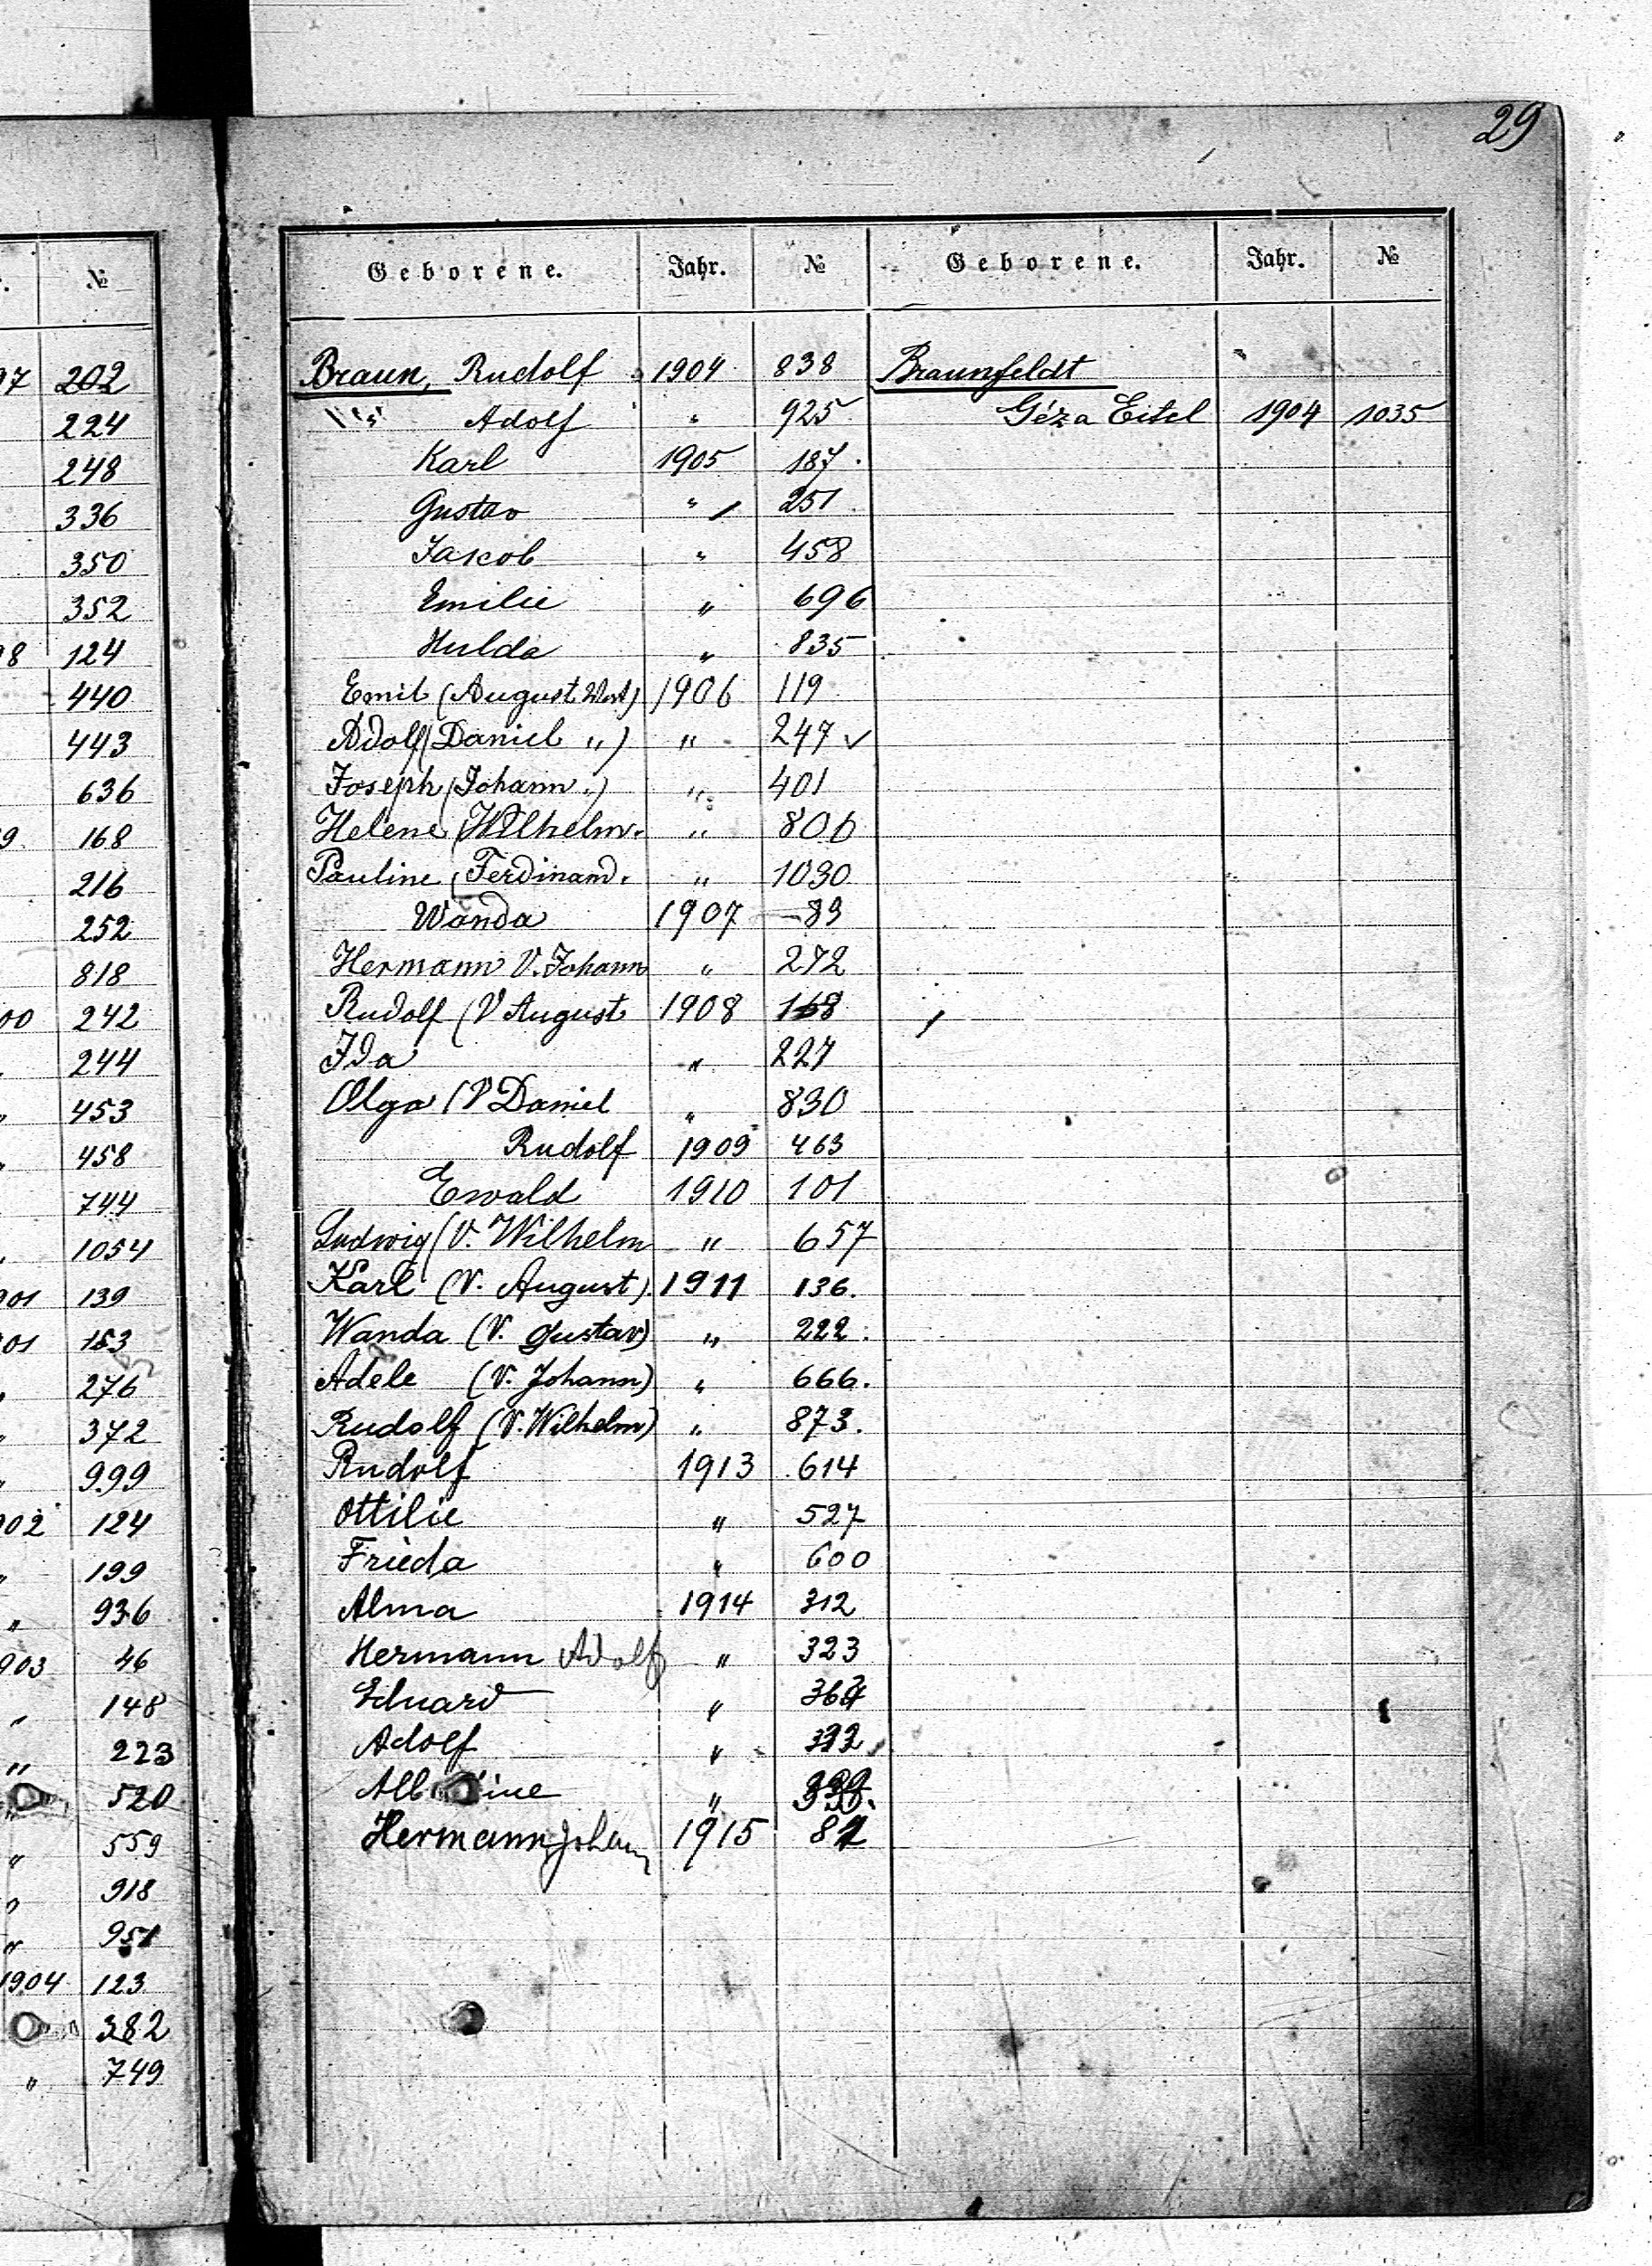 29
№
97 202
224
248
336
350
352
98 124
440
443
636
9. 168
216
252
818
00 242
244
" 453
" 458
744
" 1054
901 139
901 153
" 276
" 372
" 999
902 124
" 199
" 936
903 46
" 148
" 223
" 520
" 559
" 918
" 951
1904 123
" 382
" 749
Geborene. Jahr. №
Braun, Rudolf 1904 838
" Adolf " 925
Karl 1905 187.
Gustav " 251.
Jakob " 458
Emilie " 696
Hulda " 835
Emil (August Vat) 1906 119
Adolf (Daniel ") " 247 ✓
Joseph (Johann ") " 401
Helene (Wilhelm. " 806
Pauline (Ferdinand. " 1030
Wanda 1907 83
Hermann V. Johann " 272
Rudolf (V August 1908 168
Ida " 227
Olga (V Daniel " 830
Rudolf 1909 463
Ewald 1910 101
Ludwig (V. Wilhelm " 657
Karl (V. August). 1911 136.
Wanda (V. Gustav) " 222.
Adele (V. Johann) " 666.
Rudolf (V. Wilhelm) " 873.
Rudolf 1913 614
Ottilie " 527
Frieda " 600
Alma 1914 312
Hermann Adolf " 323
Eduard "
Adolf "
"
Hermann Johann 1915
Geborene. Jahr. №
Braunfeldt
Géza Eitel 1904 1035